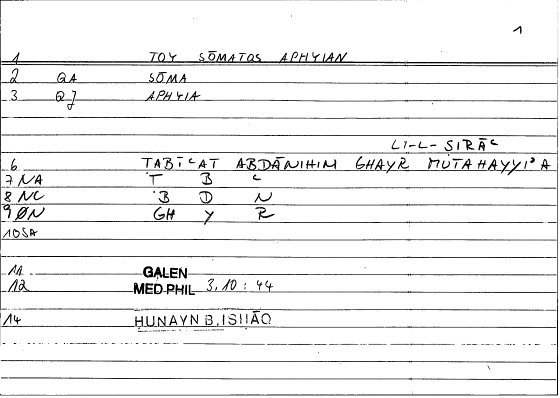 1
1 TOY SŌMATOS APHYIAN
2 QA SŌMA
3 QJ APHYIA
LI-L-ṢIRĀᶜ
6 TABĪᶜAT ABDĀNIHIM GHAYR MUTAHAYYIʾA
7 NA T B ᶜ
8 NC B D N
9 ØN GH Y R
10 SA
11 GALEN
12 MED PHIL 3,10 : 44
14 ḤUNAYN B. ISḤĀQ